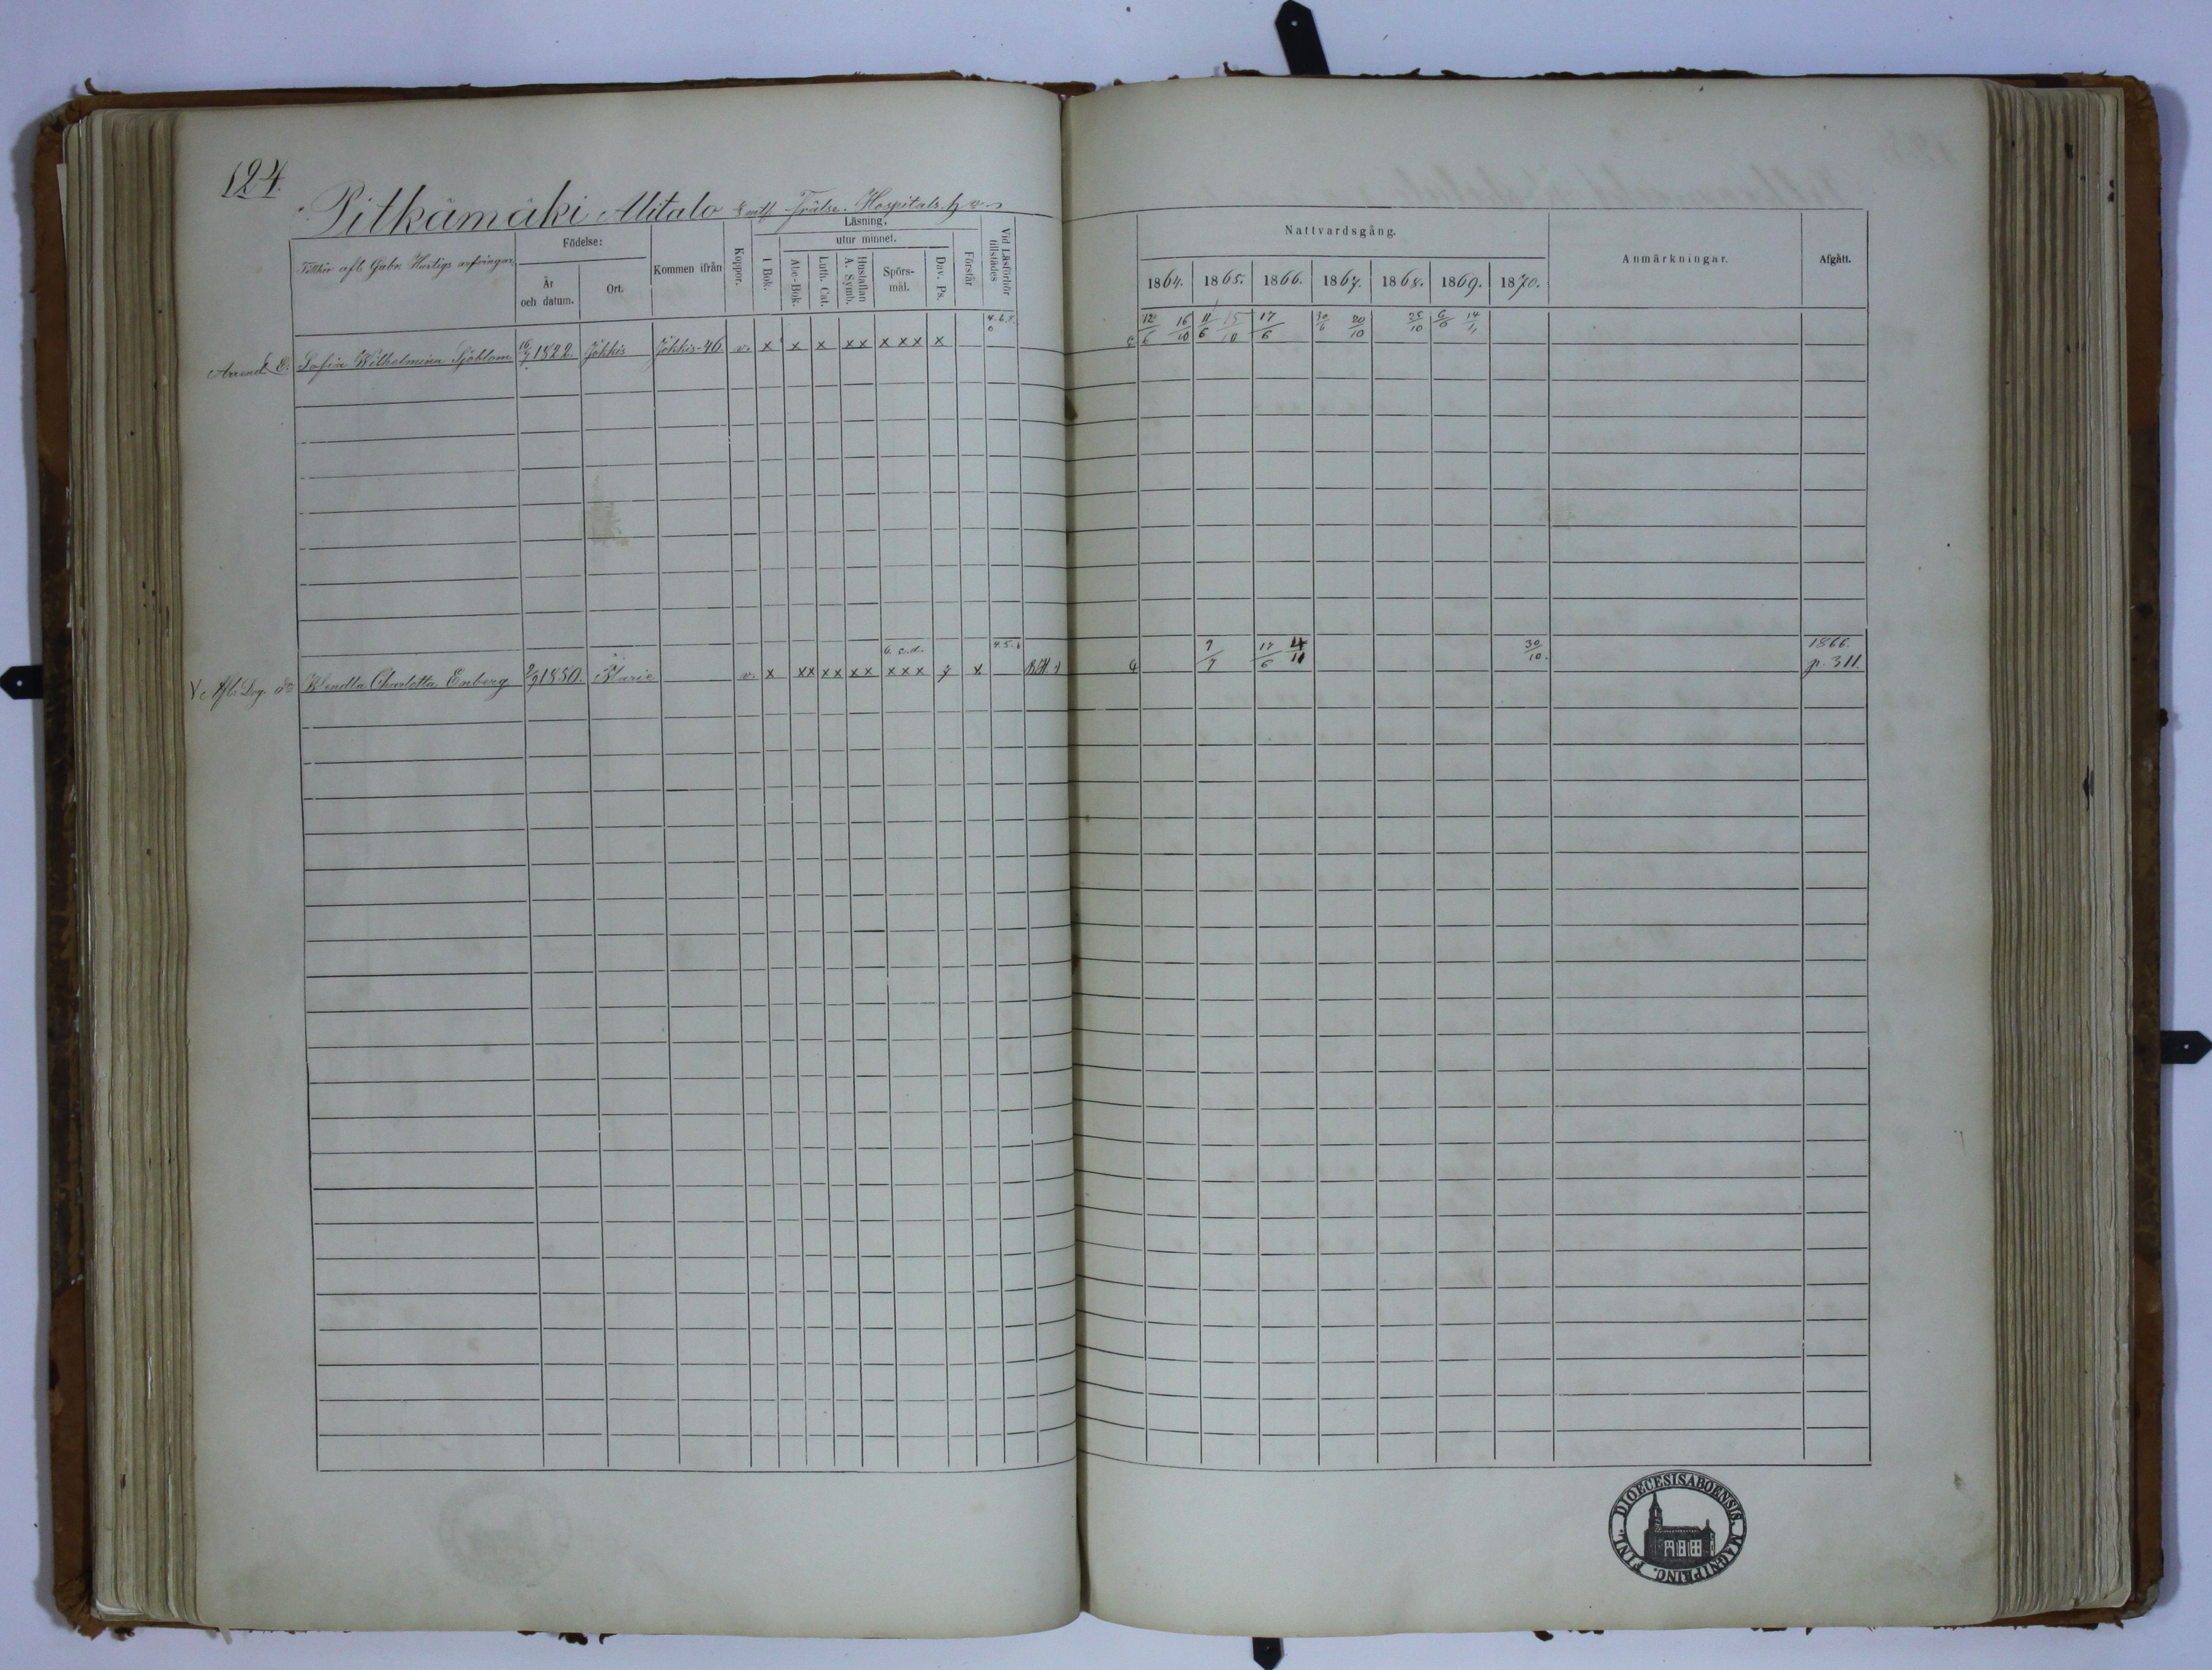 124.
Pitkämäki Alitalo Frälse. Hospitals
Tillhör afl. Gabr. Hurtigs arfvingar
Födelse:
År och datum.
Ort.
Kommen ifrån
Koppor.
Läsning.
I Bok.
utur minnet.
Abc-Bok.
Luth. Cat.
Hustaflan A. Symb.
Spörs-mål.
Dav. Ps.
Förstår
Vid Läsförhör tillstädes
Nattvardsgång.
1864. 1865. 1866. 1867. 1868. 1869. 1870.
Anmärkningar.
Afgått.
Arend. E. Sofia Wilhelmina Sjöblom 16/7 1822 Jokkis Jokkis-46 v. x x x x x x x x x 12/6 16/10 11/6 15/10 17/6 30/6 20/10 25/10 6/6 14/11
Afl. Dog. do Wendla Charlotta Enberg 2/9 1850 S:t Marie v. x x x x x x x x x x 7 x 9/7 17/6 4/11 30/10. 1866. p. 311.
DIOECESIS ABOENSIS. MAGNI PRINC. FINL.